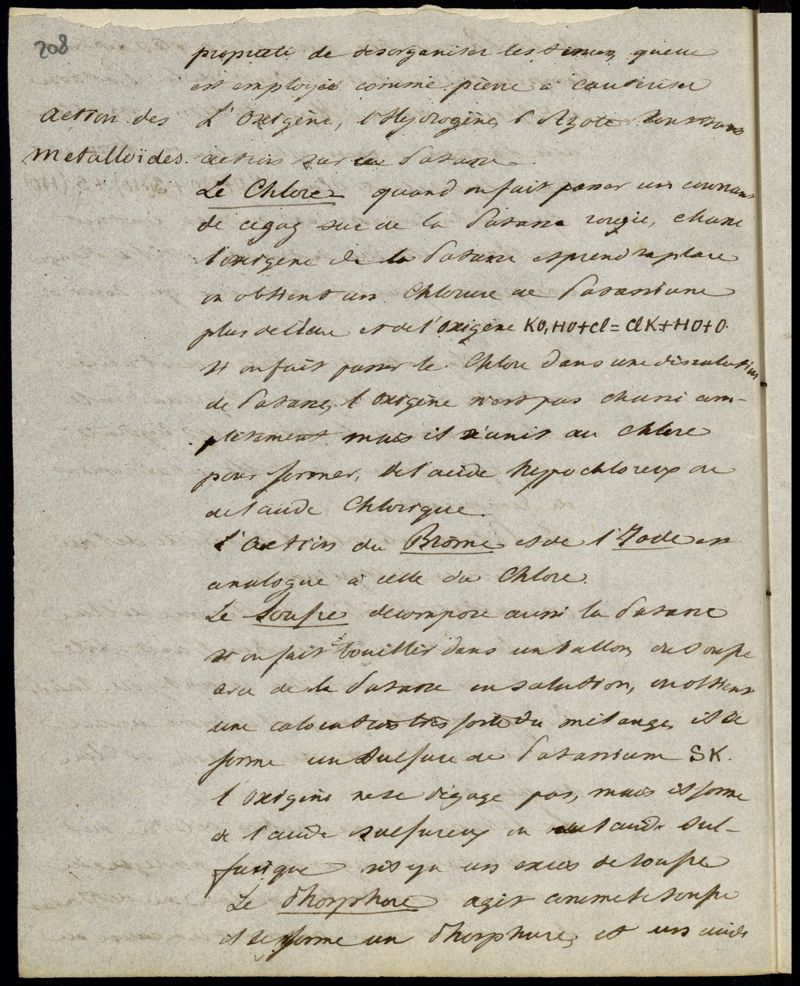 208
propriété de desorganiser les tissus, quelle
est employée comme pierre à cauteriser
action des
metalloïdes.
L'Oxigène, l'Hydrogène, l'Azote sont sans
action sur la Potasse
Le Chlore quand on fait passer un courant
de ce gaz sur de la Potasse rougie, chasse
l'oxigène de la Potasse et prend sa place
on obtient un Chlorure de Potassium
plus de l'eau et de l'oxigène KO,HO+Cl=ClK+HO+O.
si on fait passer le Chlore dans une dissolution
de Potasse, l'Oxigène n'est pas chassé com-
pletement mais il s'unit au Chlore
pour former, de l'acide hypochloreux ou
de l'acide Chlorique.
L'Action du Brome et de l'Iode est
analogue à celle du Chlore.
Le Soufre decompose aussi la Potasse
si on fait bouillir dans un ballon, du soufre
avec de la Potasse en solution, on obtient
une calorification très forte du mélange, il se
forme un Sulfure de Potassium SK.
l'oxigène ne se dégage pas, mais il forme
de l'acide sulfureux ou de l'acide Sul-
furique s'il y a un excès de soufre
Le Phosphore agit comme le soufre
il se forme un Phosphure, et un acide